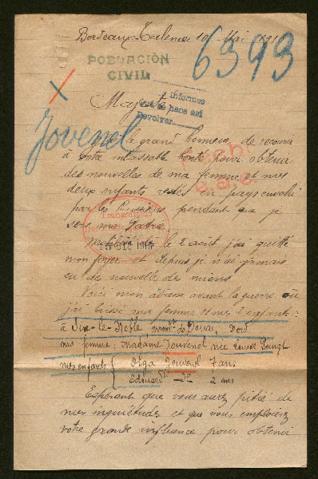 Bordeaux-Talence 10 Mai 191
6393
POBLACIÓN
CIVIL
informes
se hace así
Devolver
Majesté
Jouvenel
J'ai grand honneur, de recourir
à votre intassable bonté pour obtenir
des nouvelles de ma femme et mes
deux enfants restés en pays envahi
par les pendant que je
sers ma Patrie
le 2 août j'ai quitté
mon foyer et depuis je n'ai jamais
eu des nouvelles de miens
Voici mon adresse avant la guerre où
j'ai laissé ma femme et mes 2 enfants:
à de Douai, Nord
ma femme, madame Jouvenel rue
mes enfants Olga Jouvenel 7 ans
Edouard 2 ans
Espérant que vous aurez pitié de
mes inquiétudes et que vous emploierez
votre grande influence pour obtenir